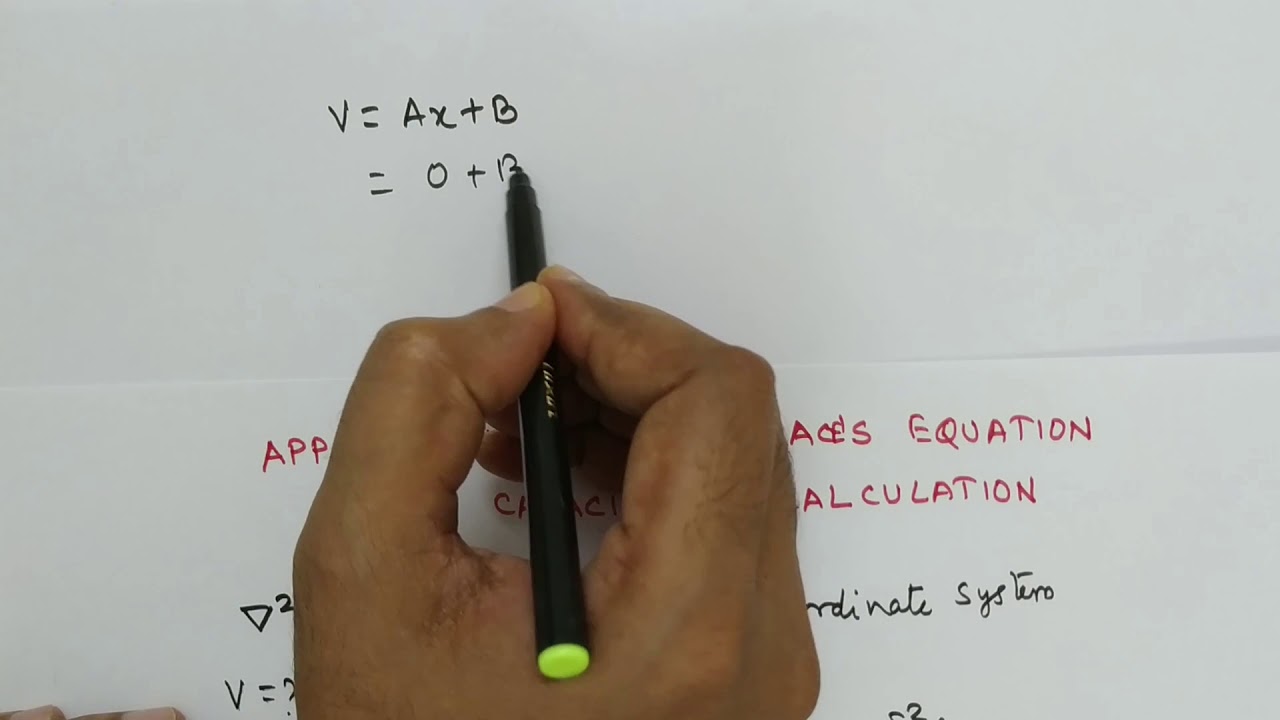 V = Ax + B
= 0 + B
APP ACE'S EQUATION
CALCULATION
∇²
ordinate System
V = ?